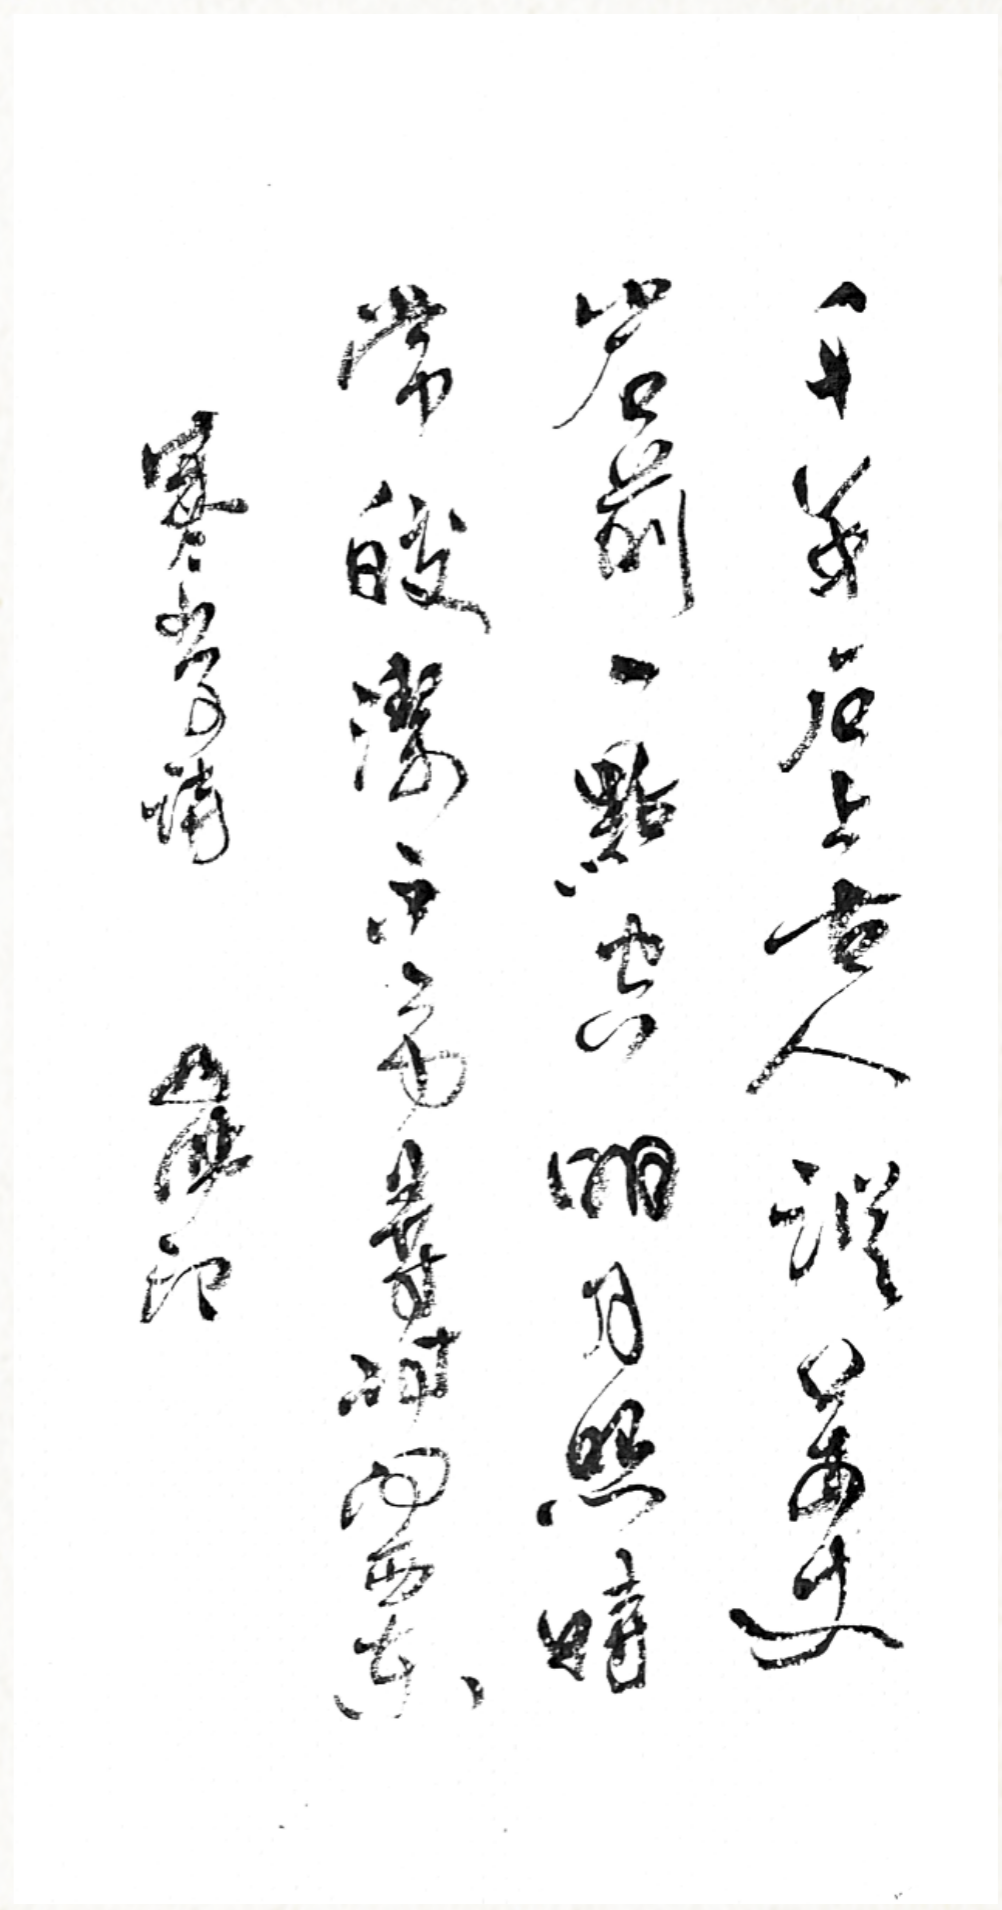 千年石上古人蹤萬丈
岩前一點空明月照時
常皎潔不勞尋討問西東
寒山子詩